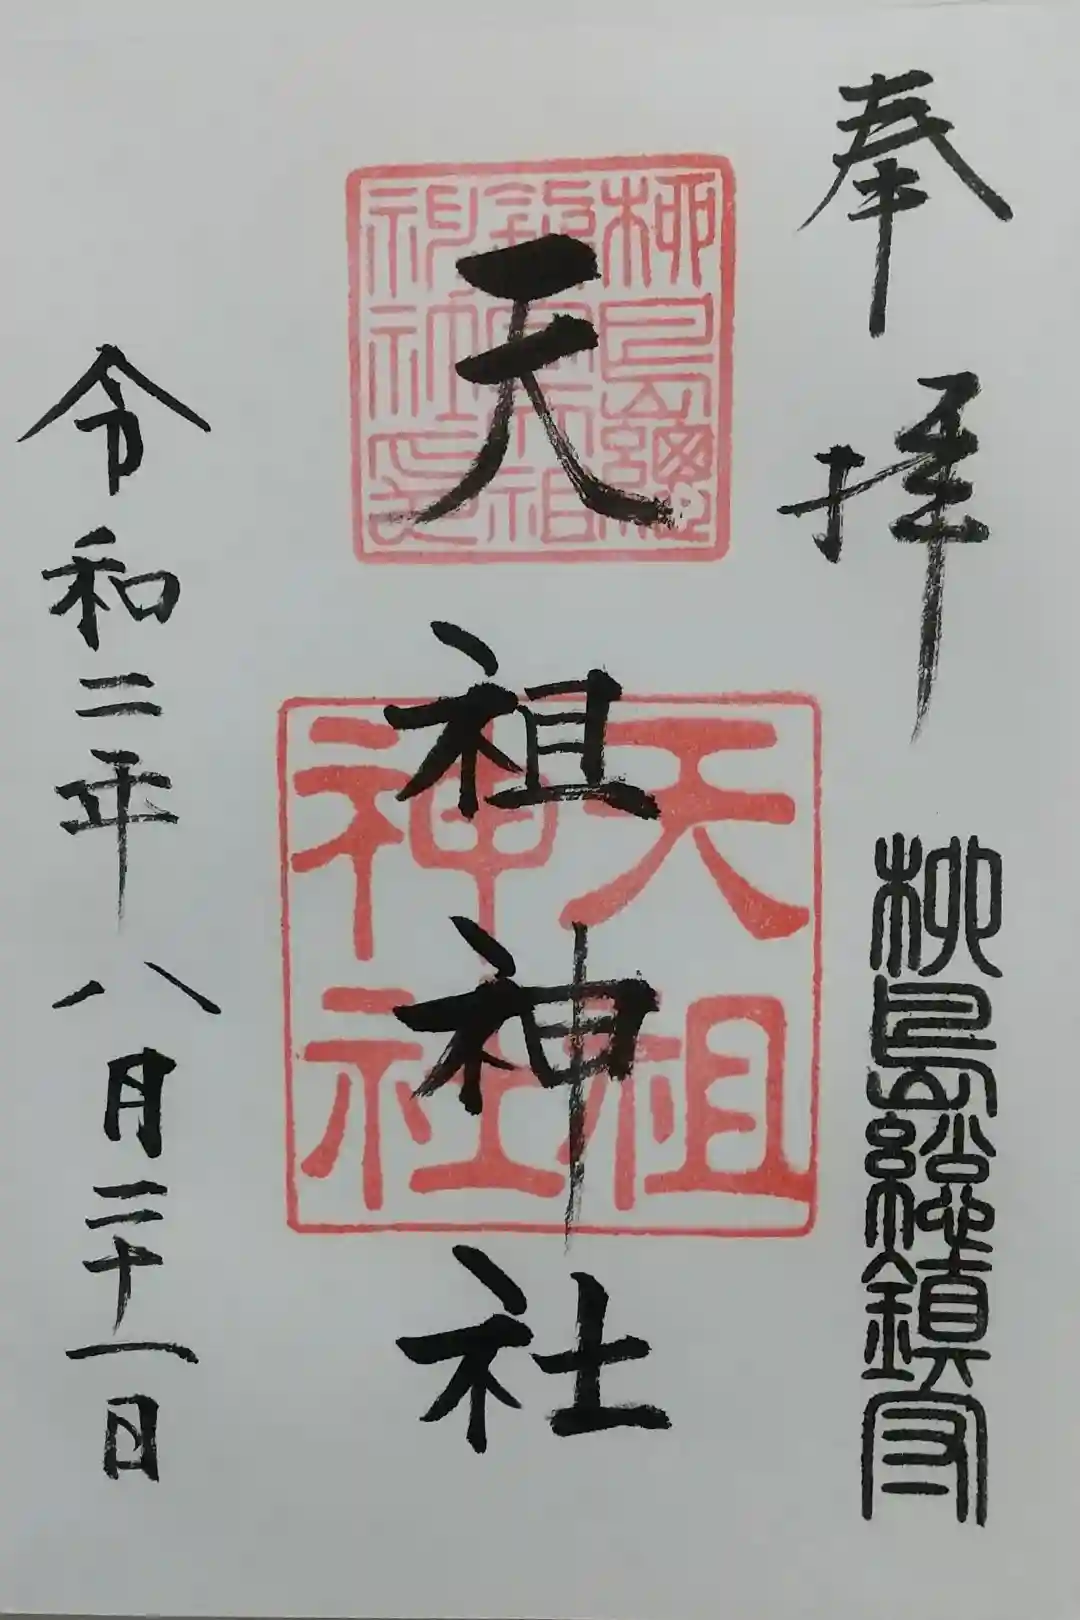 奉拝
柳島総鎮守
柳島總鎮守天祖神社之印
天祖神社
天祖神社
令和二年八月二十一日